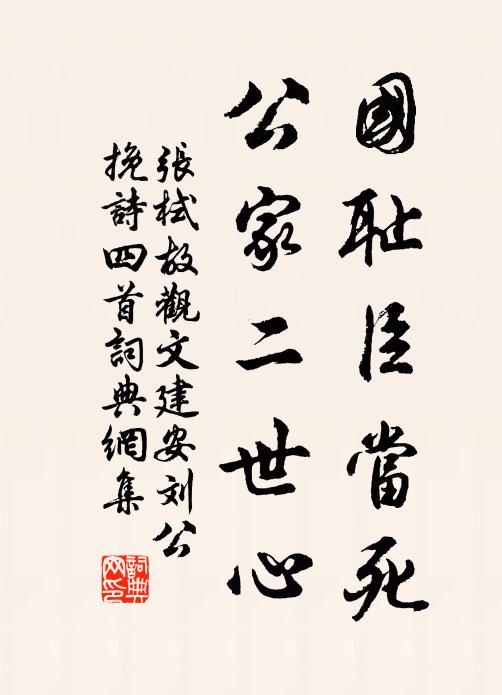 國耻臣當死
公家二世心
張栻故觀文建安刘公
挽詩四首詞典網集
詞典
网印